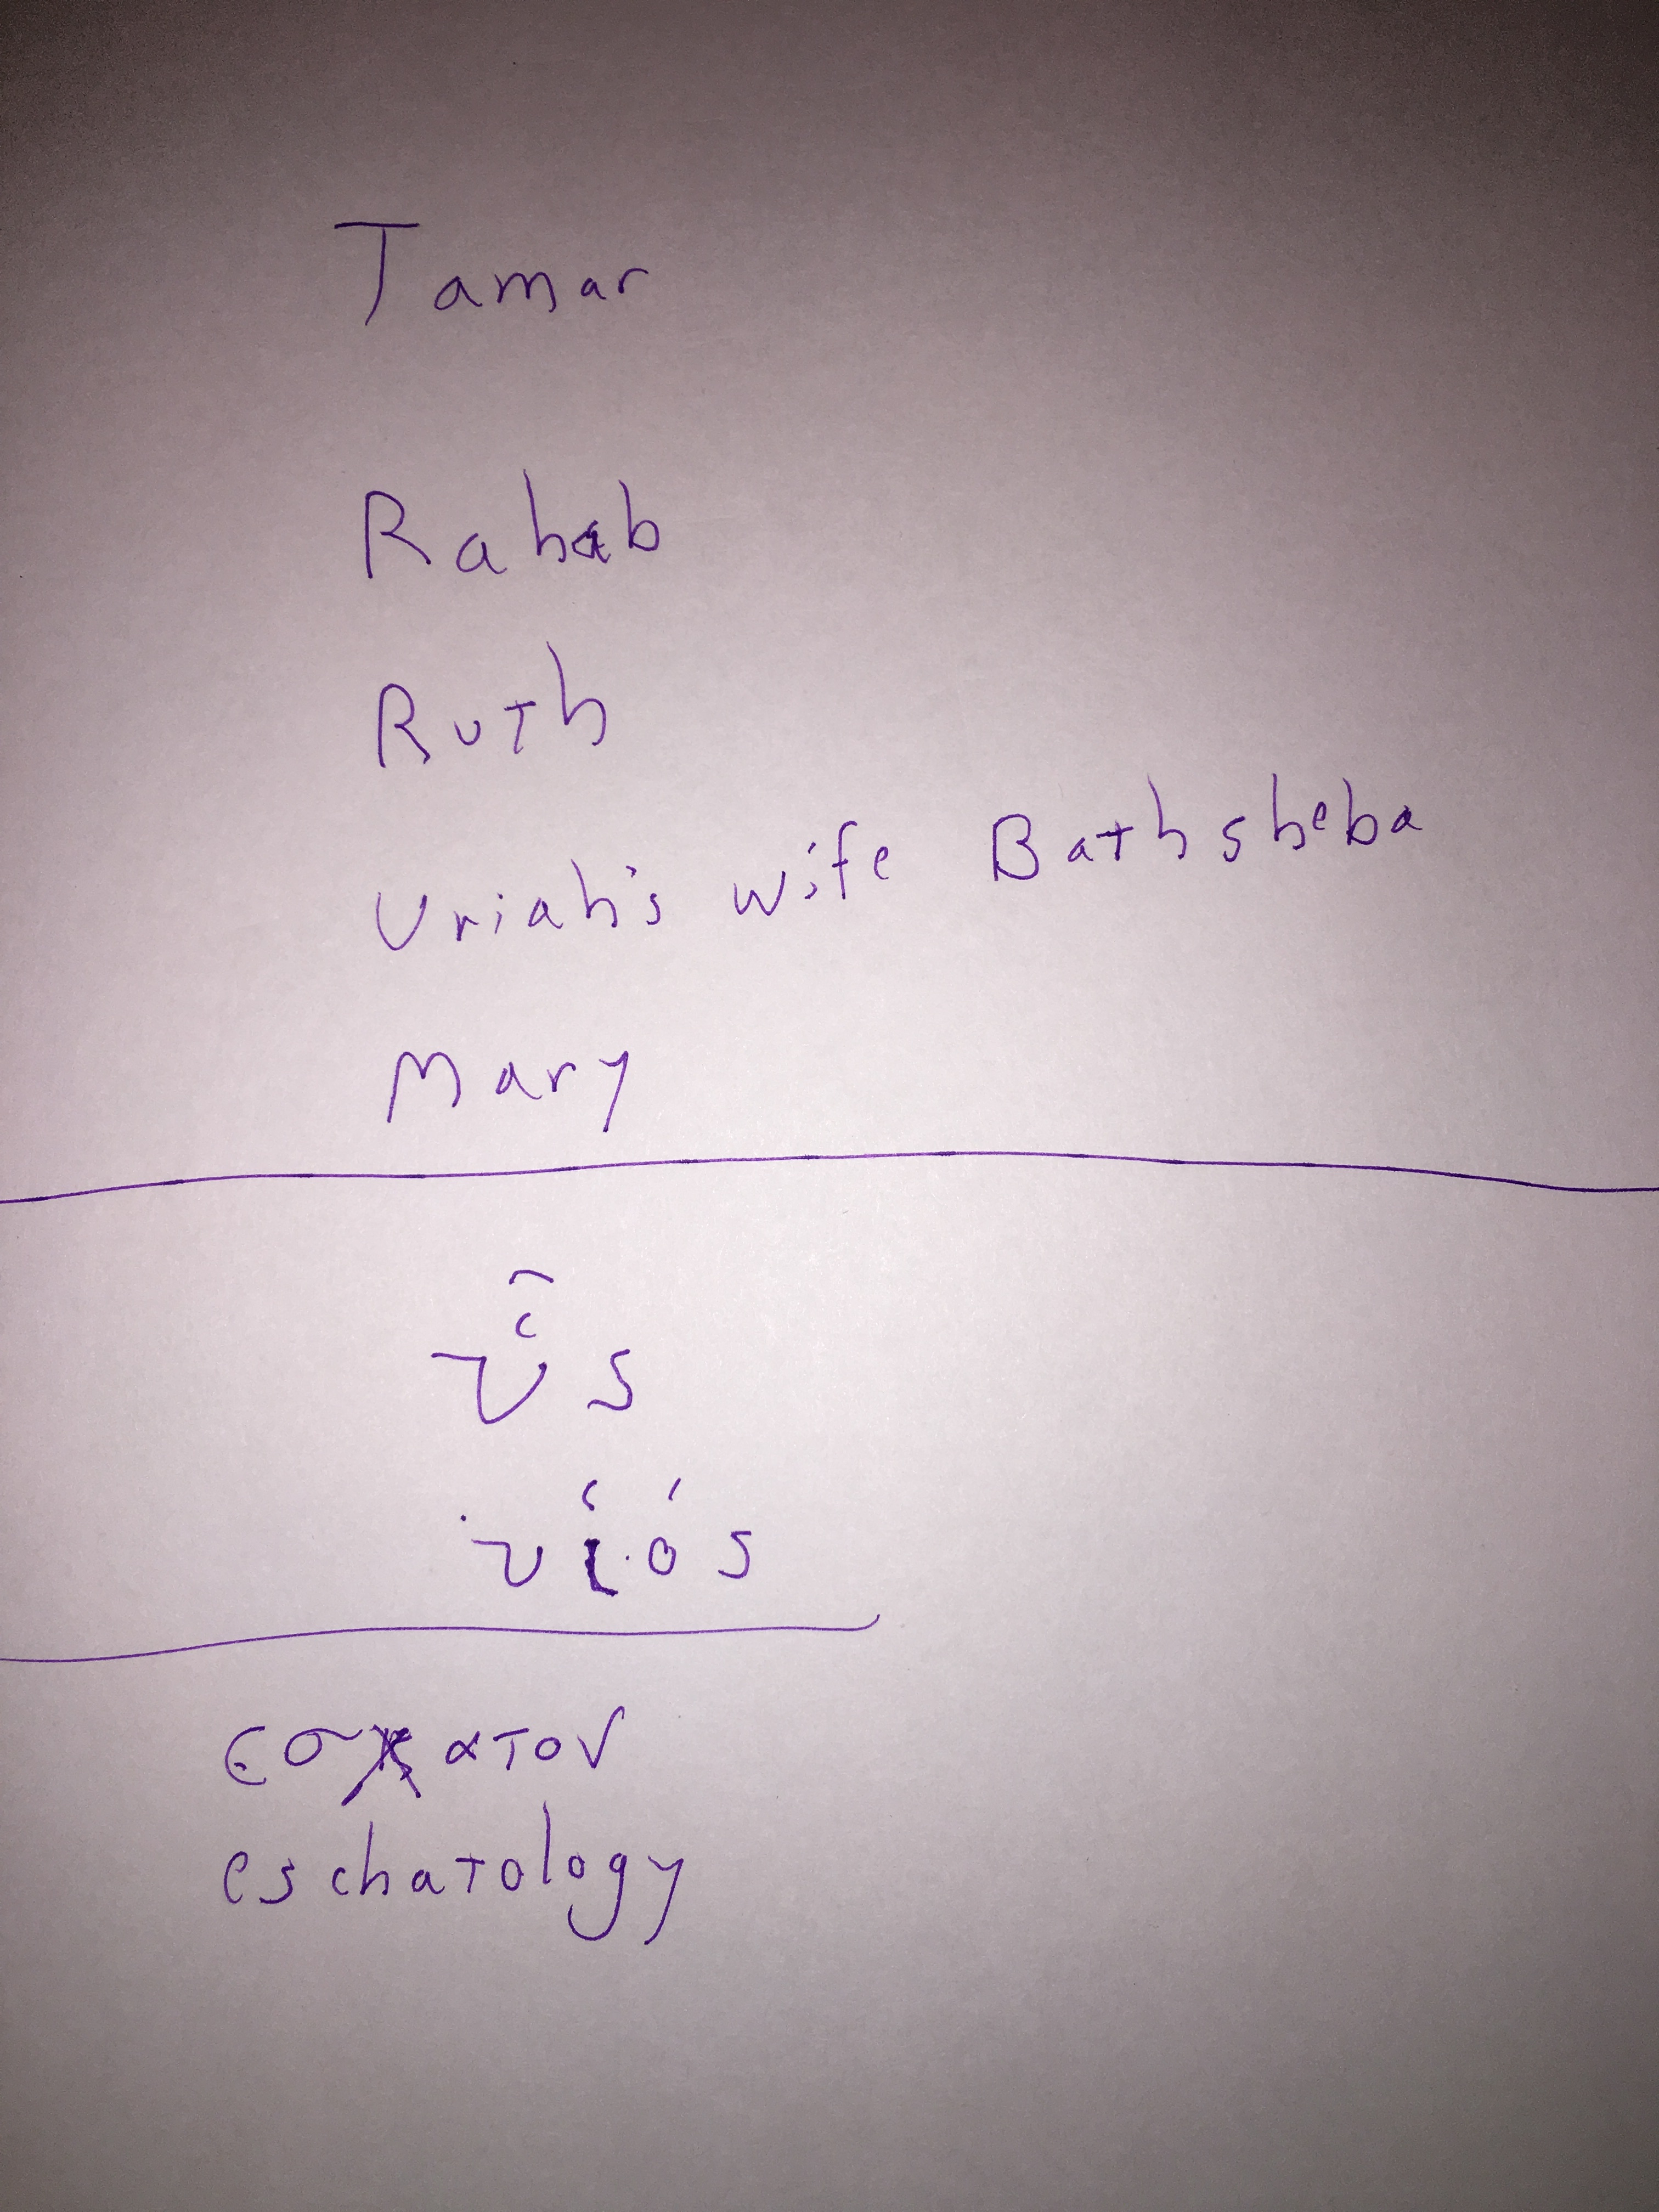 Tamar
Rahab
Ruth
Uriah's wife Bathsheba
Mary
ὗς
υἱός
εσχατον
eschatology